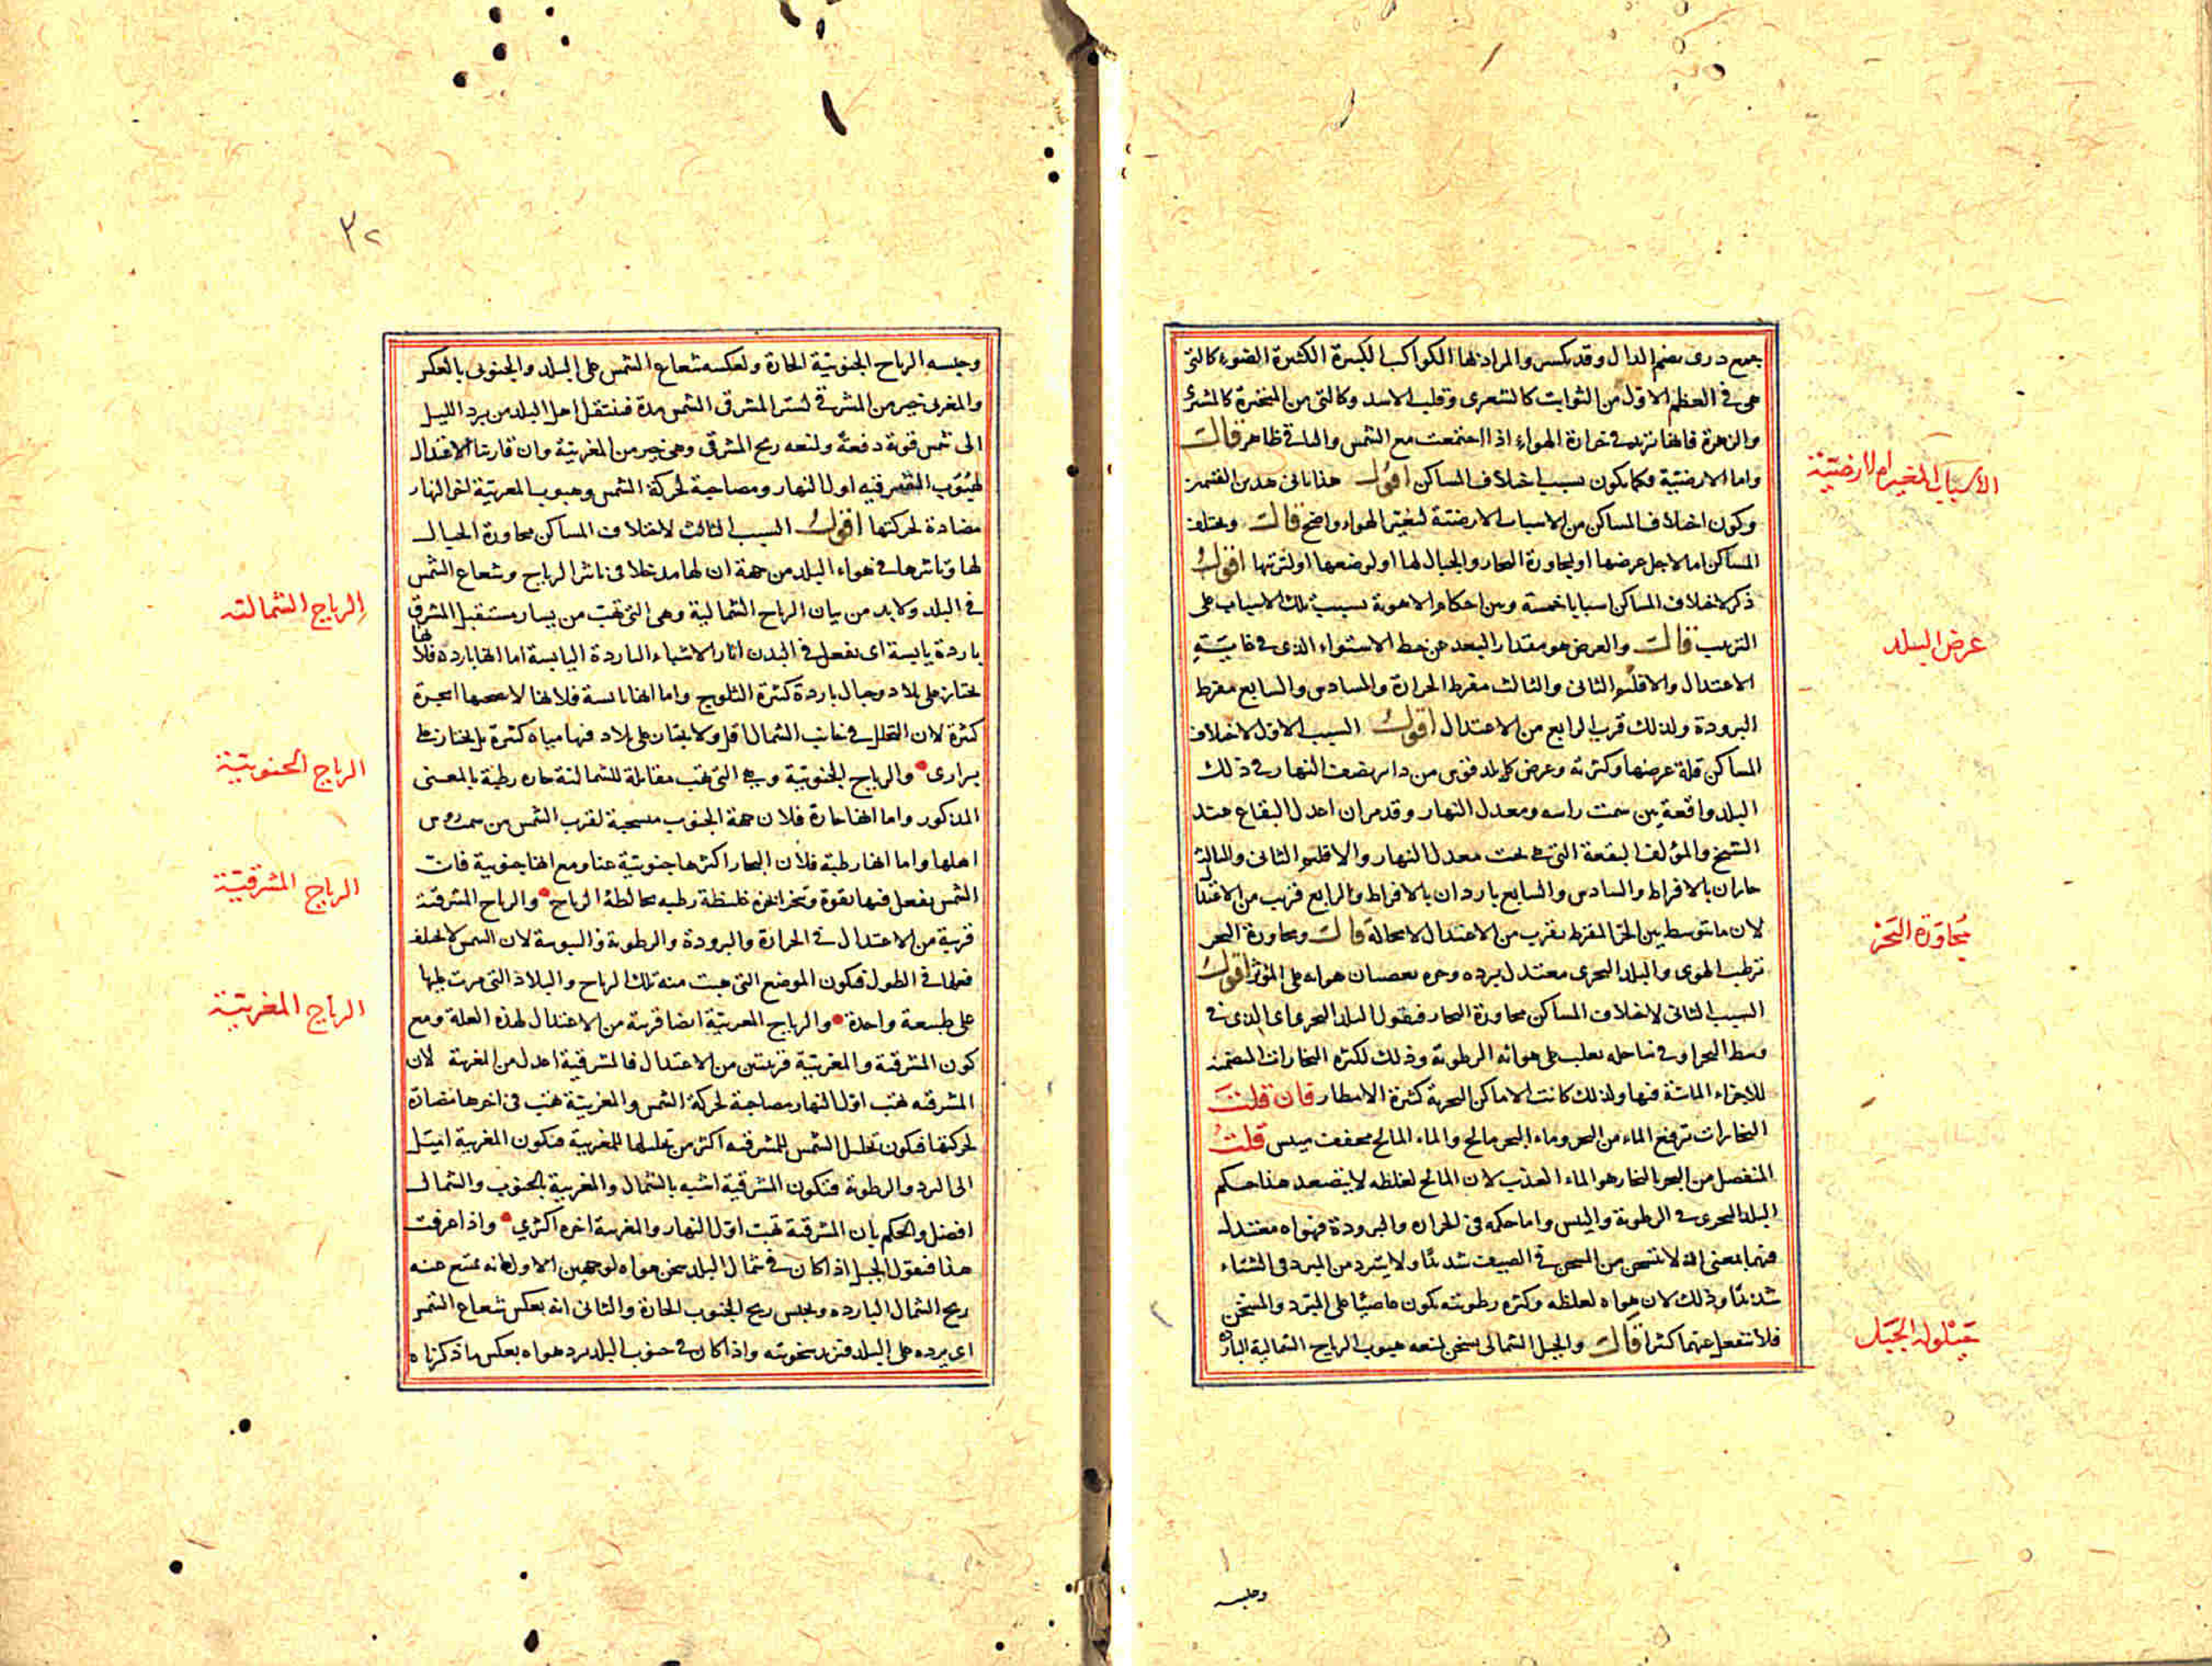 جمع درى بضم الدال وقد يكسر والمراد بها الكواكب الكبيرة الكثيرة الضوء كالتى
هى فى العظم الاول من الثوابت كالشعرى وقلب الاسد وكالتى من المتحيرة كالمشترى
والزهرة فانها تزيد فى حرارة الهواء اذا اجتمعت مع الشمس والباقى ظاهر قالــ
الاسباب المغيرة الارضية
واما الارضية فكما يكون بسبب اختلاف المساكن اقولــ هذا ثانى هذين القسمين
وكون اختلاف المساكن من الاسباب الارضية لتغيير الهواء واضح قالــ وتختلف
المساكن اما لاجل عرضها او لمجاورة البحار والجبال لها او لوضعها او لتربتها اقولــ
ذكر لاختلاف المساكن اسبابا خمسة وبين احكام الاهوية بسبب تلك الاسباب على
عرض البلد
الترتيب قالــ والعرض هو مقدار البعد عن خط الاستواء الذى فى غايــة
الاعتدال والاقليم الثانى والثالث مفرط الحرارة والسادس والسابع مفرط
البرودة ولذلك قرب الرابع من الاعتدال اقولــ السبب الاول لاختلاف
المساكن قلة عرضها وكثرته وعرض كل بلد قوس من دائرة نصف النهار فى ذلك
البلد واقعة بين سمت راسه ومعدل النهار وقد مر ان اعدل البقاع عند
الشيخ والمؤلف البقعة التى هى تحت معدل النهار والاقليم الثانى والثالث
حاران بالافراط والسادس والسابع باردان بالافراط والرابع قريب من الاعتدال
مجاورة البحر
لان ما يتوسط بين الحر المفرط يقرب من الاعتدال لا محالة قالــ ومجاورة البحر
ترطب الهوى والبلد البحرى معتدل برده وحره لعصيان هوائه على المؤثر اقولــ
السبب الثانى لاختلاف المساكن مجاورة البحار فنقول البلد البحرى اى الذى فى
وسط البحر او فى ساحله يغلب على هوائه الرطوبة وذلك لكثرة البخارات المتضمنة
للاجزاء المائية فيها ولذلك كانت الاماكن البحرية كثيرة الامطار فان قلت
البخارات ترفع الماء من البحر وماء البحر مالح والماء المالح مجفف ميبس قلت
المنفصل من البحر البخار هو الماء العذب لان المالح لغلظه لا يتصعد هذا حكم
البلد البحرى فى الرطوبة واليبس واما حكمه فى الحرارة والبرودة فهواه معتدل
فيهما بمعنى انه لا يتسخن من المسخن فى الصيف شديدا ولا يتبرد من المبرد فى الشتاء
شديدا وذلك لان هواه لغلظه وكثرة رطوبته يكون عاصيا على المبرد والمسخن
حيلولة الجبل
فلا ينفعل عنهما كثيرا قالــ والجبل الشمالى يسخن لمنعه هبوب الرياح الشمالية الباردة
وحبسه
٣٢
وحبسه الرياح الجنوبية الحارة ولعكسه شعاع الشمس على البلد والجنوبى بالعكس
والمغربى خير من المشرقى لستر المشرقى الشمس مدة فينتقل اهل البلد من برد الليل
الى شمس قوية دفعة ولمنعه ريح المشرق وهى خير من المغربية وان قاربتا الاعتدال
لهبوب المشرقية اول النهار ومصاحبة لحركة الشمس وهبوب المغربية اخر النهار
مضادة لحركتها اقولــ السبب الثالث لاختلاف المساكن مجاورة الجبال
لها وتاثيرها فى هواء البلد من جهة ان لها مدخلا فى تاثير الرياح وشعاع الشمس
الرياح الشمالية
فى البلد ولا بد من بيان الرياح الشمالية وهى التى تهب من يسار مستقبل المشرق
باردة يابسة اى تفعل فى البدن اثار الاشياء الباردة اليابسة اما انها باردة فلانها
تجتاز على بلاد وجبال باردة كثيرة الثلوج واما انها يابسة فلانها لا تصحبها ابخرة
كثيرة لان التحلل فى جانب الشمال اقل ولا يجتاز على بلاد فيها مياه كثيرة بل يجتاز على
الرياح الجنوبية
برارى والرياح الجنوبية وهى التى تهب مقابلة للشمالية حارة رطبة بالمعنى
المذكور واما انها حارة فلان جهة الجنوب مسخنة لقرب الشمس من سمت روس
اهلها واما انها رطبة فلان البحار اكثرها جنوبية عنا ومع انها جنوبية فان
الرياح المشرقية
الشمس تفعل فيها بقوة وتبخر ابخرة غليظة رطبة مخالطة الرياح والرياح المشرقية
قريبة من الاعتدال فى الحرارة والبرودة والرطوبة واليبوسة لان الشمس لا يختلف
فعلها فى الطول فيكون الموضع التى هبت منه تلك الرياح والبلاد التى مرت عليها
الرياح المغربية
على طبيعة واحدة والرياح المغربية ايضا قريبة من الاعتدال لهذه العلة ومع
كون المشرقية والمغربية قريبتين من الاعتدال فالمشرقية اعدل من المغربية لان
المشرقية تهب اول النهار مصاحبة لحركة الشمس والمغربية تهب فى اخرها مضادة
لحركتها فيكون تحليل الشمس للمشرقية اكثر من تحليلها للمغربية فيكون المغربية اميل
الى البرد والرطوبة فيكون المشرقية اشبه بالشمال والمغربية بالجنوب والشمال
افضل والحكم بان المشرقية تهب اول النهار والمغربية اخره اكثرى واذا عرفت
هذا فنقول الجبل اذا كان فى شمال البلد سخن هواه لوجهين الاول انه يمنع عنه
ريح الشمال الباردة ويحبس ريح الجنوب الحارة والثانى انه يعكس شعاع الشمس
اى يرده على البلد فتزيد سخونته واذا كان فى جنوب البلد برد هواه بعكس ما ذكرناه